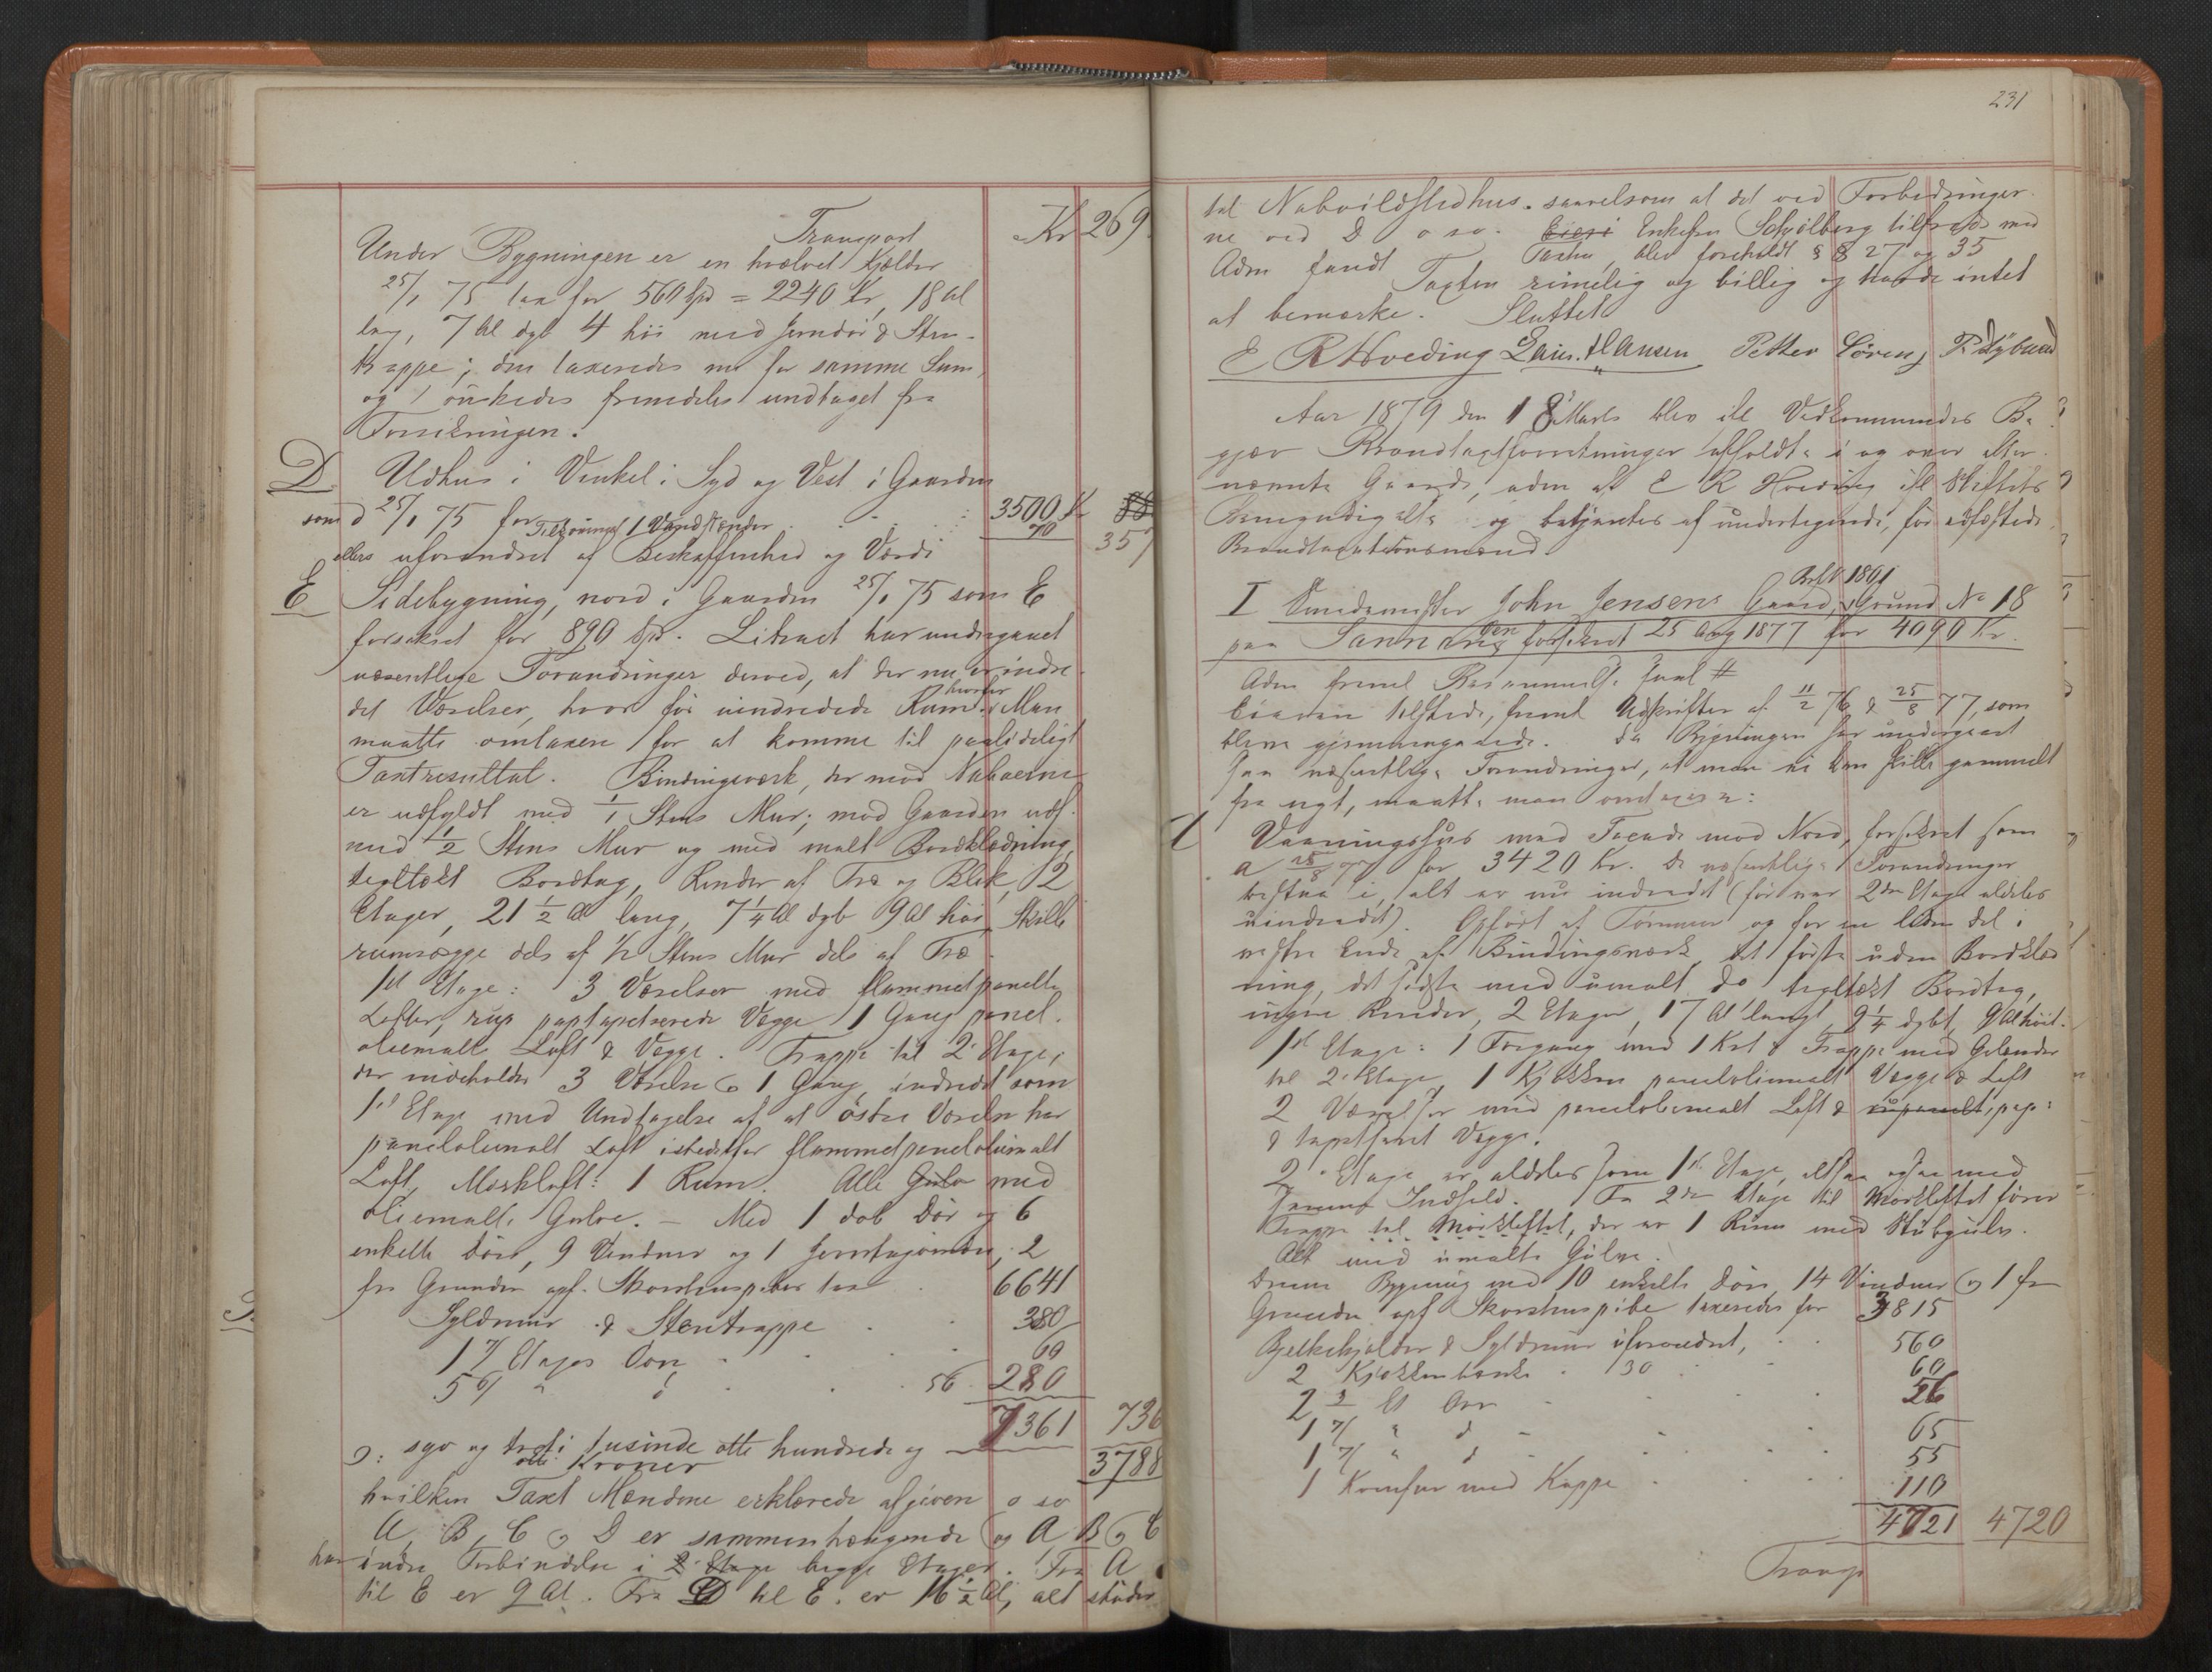 Transport Kr 269
Under Bygningen er en hvælvet Kjelder
25/1 75 tax for 560 Spd = 2240 Kr, 18 Al
lang, 7 Al dyb 4 høi med Jerndør & Sten-
trappe; den taxeredes nu for samme Sum,
og önskedes fremdeles undtaget fra
Forsikringen.
D Udhus i Vinkel i Syd og Vest i Gaarden
som d 25/1 75 for 3500 Kr
Tilbringes 1 Vandstænder 70 357
ellers uforandret af Beskaffenhed og Værdi
E Sidebygning, nord i Gaarden 25/1 75 som E
forsikret for 890 Spd. Litraet har undergaaet
væsentlige Forandringer derved, at der nu er indre-
det Værelser, hvor før uindredede Rum. hvorfor Man
maatte omtaxere for at komme til paalideligt
Taxtresultat. Bindingsværk, der mod Naboerne
er udfyldt med 1/1 Stens Mur; mod Gaarden udf.
med 1/2 Stens Mur og med malt Bordklædning,
tegltækt Bordtag, Render af Træ og Blik, 2
Etager, 21 1/2 Al lang, 7 1/4 Al dyb 9 Al høi, Skille
rumsvægge dels af 1/2 Stens Mur dels af Træ
1st Etage: 3 Værelser med flammetpanelte
Lofter, rup paptapetserede Vægge 1 Gang panel.
oliemalt Loft & Vægge. Trappe til 2 Etage,
der indeholder 3 Værelser & 1 Gang indredet som
1st Etage med Undtagelse af at östre Værelse har
paneloliemalt Loft istedetfor flammetpaneloliemalt
Loft, Mørkloft: 1 Rum. Alle Gulve med
oliemalte Gulve. – Med 1 dob Dör og 6
enkelte Döre, 9 Vinduer og 1 , 2
fra Grunden opf. Skorstenspiber tax 6641
Syldmur & Stentrappe 380
1 7/ Etages Ovn 60
5 6/ " d 56 280
7361 736
ɔ: syv og treti tusinde otte hundrede og
otte Kroner 3788
hvilken Taxt Mændene erklærede afgiven o sv
A, B, C & D er sammenhængende og A B & C
har indre Forbindelse i 2 Etage begge Etager. Fra A
til E er 9 Al. Fra D til E. er 16 1/2 Al, alt støder
231
til Naboildstedhus. saavelsom at det ved Forbedringer
ne ved D o sv. Eieri Enkefru Schjølberg tilfreds med
Taxten, blev foreholdt § § 27 og 35
Adm fandt Taxten rimelig og billig og havde intet
at bemærke. Sluttet
E R Hveding Laur. Hansen Petter Sörens
Aar 1879 den 18 Marts blev ifl Vedkommendes Be
gjær Brandtaxtforretninger afholdte i og over efter-
nævnte Gaarde, adm af E R Hveding ifl Stiftets
Bemyndigelse og betjentes af undertegnede, før edfæstede
Brandtaxationsmænd
I Smedemester John Jensens Gaard, Grund No 18
paa Sann forsikret 25 Aug 1877 for 4090 Kr.
Adm freml
Eieren tilstede, freml Udskrifter af 11/2 76 & 25/8 77, som
bleve gjennemgaaede. Da Bygningen har undergaaet
saa væsentlige Forandringer, at man ei kan skille gammelt
fra nyt, maatte man omtaxere:
Vaaningshus med Facade mod Nord, forsikret som
a 25/8 77 for 3420 Kr. De væsentlige Forandringer
bestaa i, alt er nu indredet (før var 2den Etage aldeles
uindredet). Opført af Tømmer og for en liden del i
vestre Ende af Bindingsværk det første uden Bordklæd
ning, det sidste med umalt do tegltækt Bordtag,
ingen Render, 2 Etager, 17 Al langt, 9 1/4 dybt, 9 Al høit.
1st Etage: 1 Forgang med 1 Kot & Trappe med Gelænder
til 2 Etage, 1 Kjøkken paneloliemalt Vægge & Loft
2 Værelser med paneloliemalt Loft & rupanelt, pap:
& tapetseret Vægge.
2 Etage er aldeles som 1st Etage, altsaa ogsaa med
samme Indhold. Fra 2den Etage til Mørkloftet fører
Trappe til Mørkloftet, der er 1 Rum med Stubgulv.
Alt med umalte Gulve.
Denne Bygning med 10 enkelte Døre 14 Vinduer og 1 fra
Grunden opf Skorstenspibe taxeredes for 3815
Bjelkekjelder & Syldmur uforandret, 560
2 Kjøkkenbænke 130 60
2 2/ Et Ovn 56
1 7/ " d 65
1 7/ " d 55
1 Komfur med Kappe 110
4721 4720
Transp